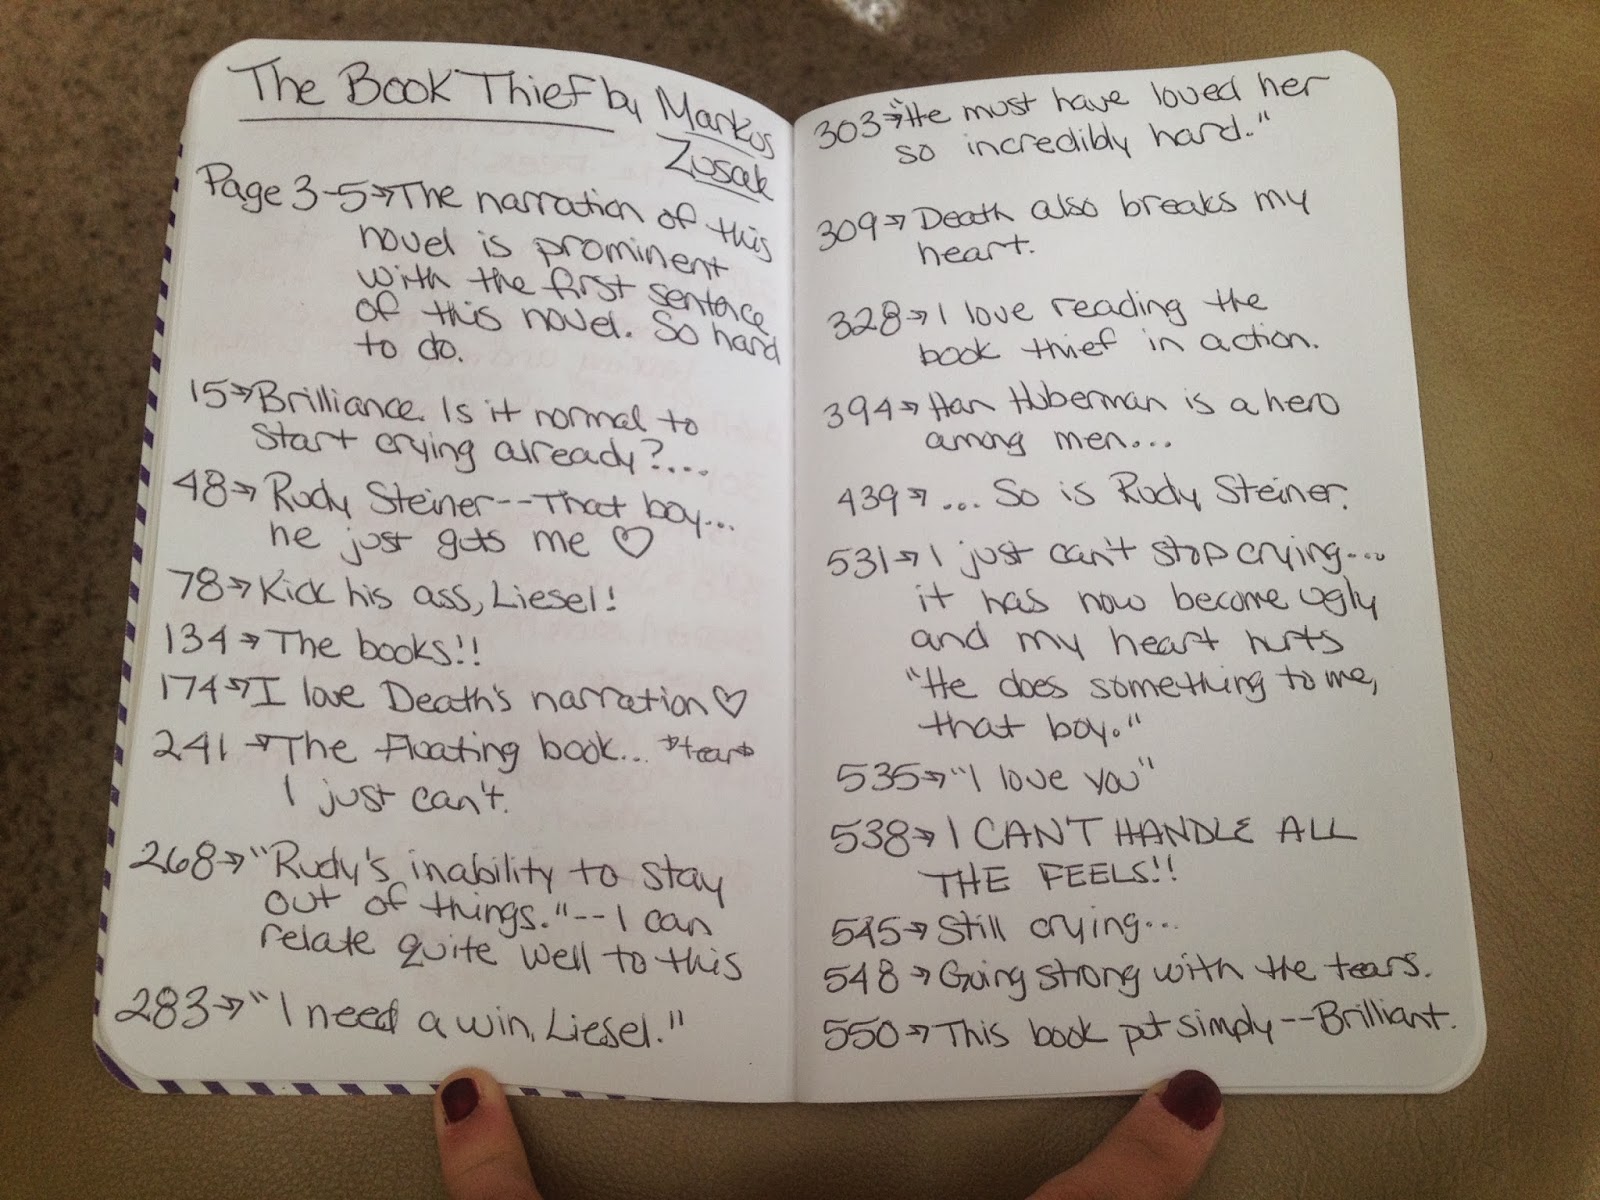 The Book Thief by Markus
Zusak
Page 3-5→The narration of this
novel is prominent
with the first sentence
of this novel. So hard
to do.
15→Brilliance. Is it normal to
start crying already?...
48→Rudy Steiner--That boy...
he just gets me ♡
78→Kick his ass, Liesel!
134→The books!!
174→I love Death's narration♡
241→The Floating book... *tear*
I just can't.
268→"Rudy's inability to stay
out of things."--I can
relate quite well to this
283→"I need a win, Liesel."
303→"He must have loved her
so incredibly hard."
309→Death also breaks my
heart.
328→I love reading the
book thief in action.
394→Han Huberman is a hero
among men...
439→... So is Rudy Steiner.
531→I just can't stop crying...
it has now become ugly
and my heart hurts
"He does something to me,
that boy."
535→"I love you"
538→I CAN'T HANDLE ALL
THE FEELS!!
545→Still crying...
548→Going strong with the tears.
550→This book put simply--Brilliant.